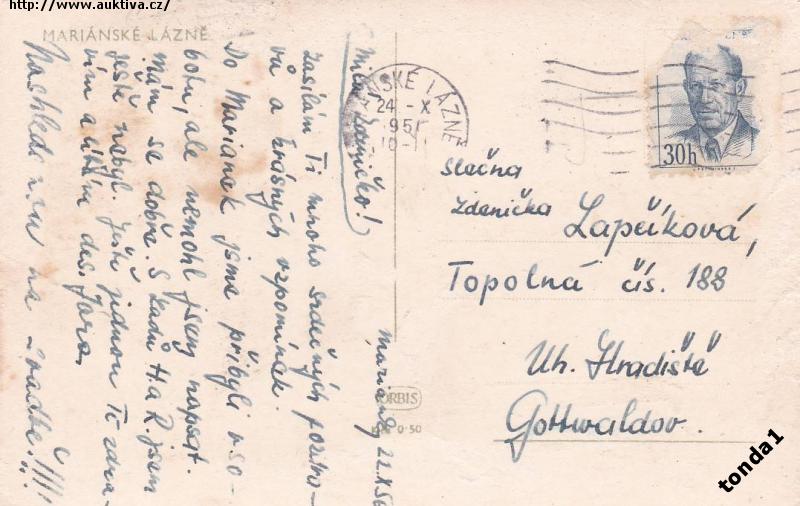 http://www.auktiva.cz/
MARIÁNSKÉ LÁZNĚ
Milá Zdeničko!
Zasílám Ti mnoho srdečných pozdra-
vů a krásných vzpomínek.
Do Marianek jsme přibyli v so-
botu, ale nemohl jsem napsat.
mám se dobře. S Laďů H. a R. jsem
ještě nebyl. Ještě jednou Tě zdra-
vím a líbám des. Jara.
Nashledanou na svadbě!!!!
Mariánky 22.X.56
SKÉ LÁZNĚ
24 -X
195
10-
30 h
Slečna
Zdenička Lapčíková,
Topolná čís. 188
Uh. Hradiště
Gottwaldov.
ORBIS
0·50
tonda1